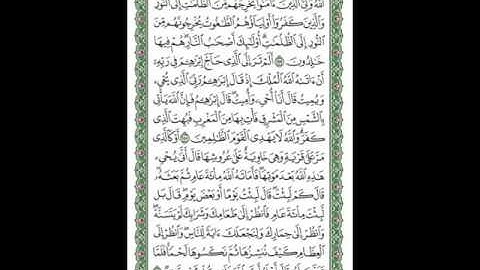 اللَّهُ وَلِيُّ الَّذِينَ ءَامَنُوا يُخْرِجُهُم مِّنَ الظُّلُمَاتِ إِلَى النُّورِ
وَالَّذِينَ كَفَرُوا أَوْلِيَاؤُهُمُ الطَّاغُوتُ يُخْرِجُونَهُم مِّنَ
النُّورِ إِلَى الظُّلُمَاتِ أُولَٰئِكَ أَصْحَابُ النَّارِ هُمْ فِيهَا
خَالِدُونَ ۝ أَلَمْ تَرَ إِلَى الَّذِي حَاجَّ إِبْرَاهِيمَ فِي رَبِّهِ
أَنْ ءَاتَاهُ اللَّهُ الْمُلْكَ إِذْ قَالَ إِبْرَاهِيمُ رَبِّيَ الَّذِي يُحْيِي
وَيُمِيتُ قَالَ أَنَا أُحْيِي وَأُمِيتُ قَالَ إِبْرَاهِيمُ فَإِنَّ اللَّهَ يَأْتِي
بِالشَّمْسِ مِنَ الْمَشْرِقِ فَأْتِ بِهَا مِنَ الْمَغْرِبِ فَبُهِتَ الَّذِي
كَفَرَ وَاللَّهُ لَا يَهْدِي الْقَوْمَ الظَّالِمِينَ ۝ أَوْ كَالَّذِي
مَرَّ عَلَىٰ قَرْيَةٍ وَهِيَ خَاوِيَةٌ عَلَىٰ عُرُوشِهَا قَالَ أَنَّىٰ يُحْيِي
هَٰذِهِ اللَّهُ بَعْدَ مَوْتِهَا فَأَمَاتَهُ اللَّهُ مِائَةَ عَامٍ ثُمَّ بَعَثَهُ
قَالَ كَمْ لَبِثْتَ قَالَ لَبِثْتُ يَوْمًا أَوْ بَعْضَ يَوْمٍ قَالَ بَل
لَّبِثْتَ مِائَةَ عَامٍ فَانظُرْ إِلَىٰ طَعَامِكَ وَشَرَابِكَ لَمْ يَتَسَنَّهْ
وَانظُرْ إِلَىٰ حِمَارِكَ وَلِنَجْعَلَكَ ءَايَةً لِّلنَّاسِ وَانظُرْ إِلَى
الْعِظَامِ كَيْفَ نُنشِزُهَا ثُمَّ نَكْسُوهَا لَحْمًا فَلَمَّا